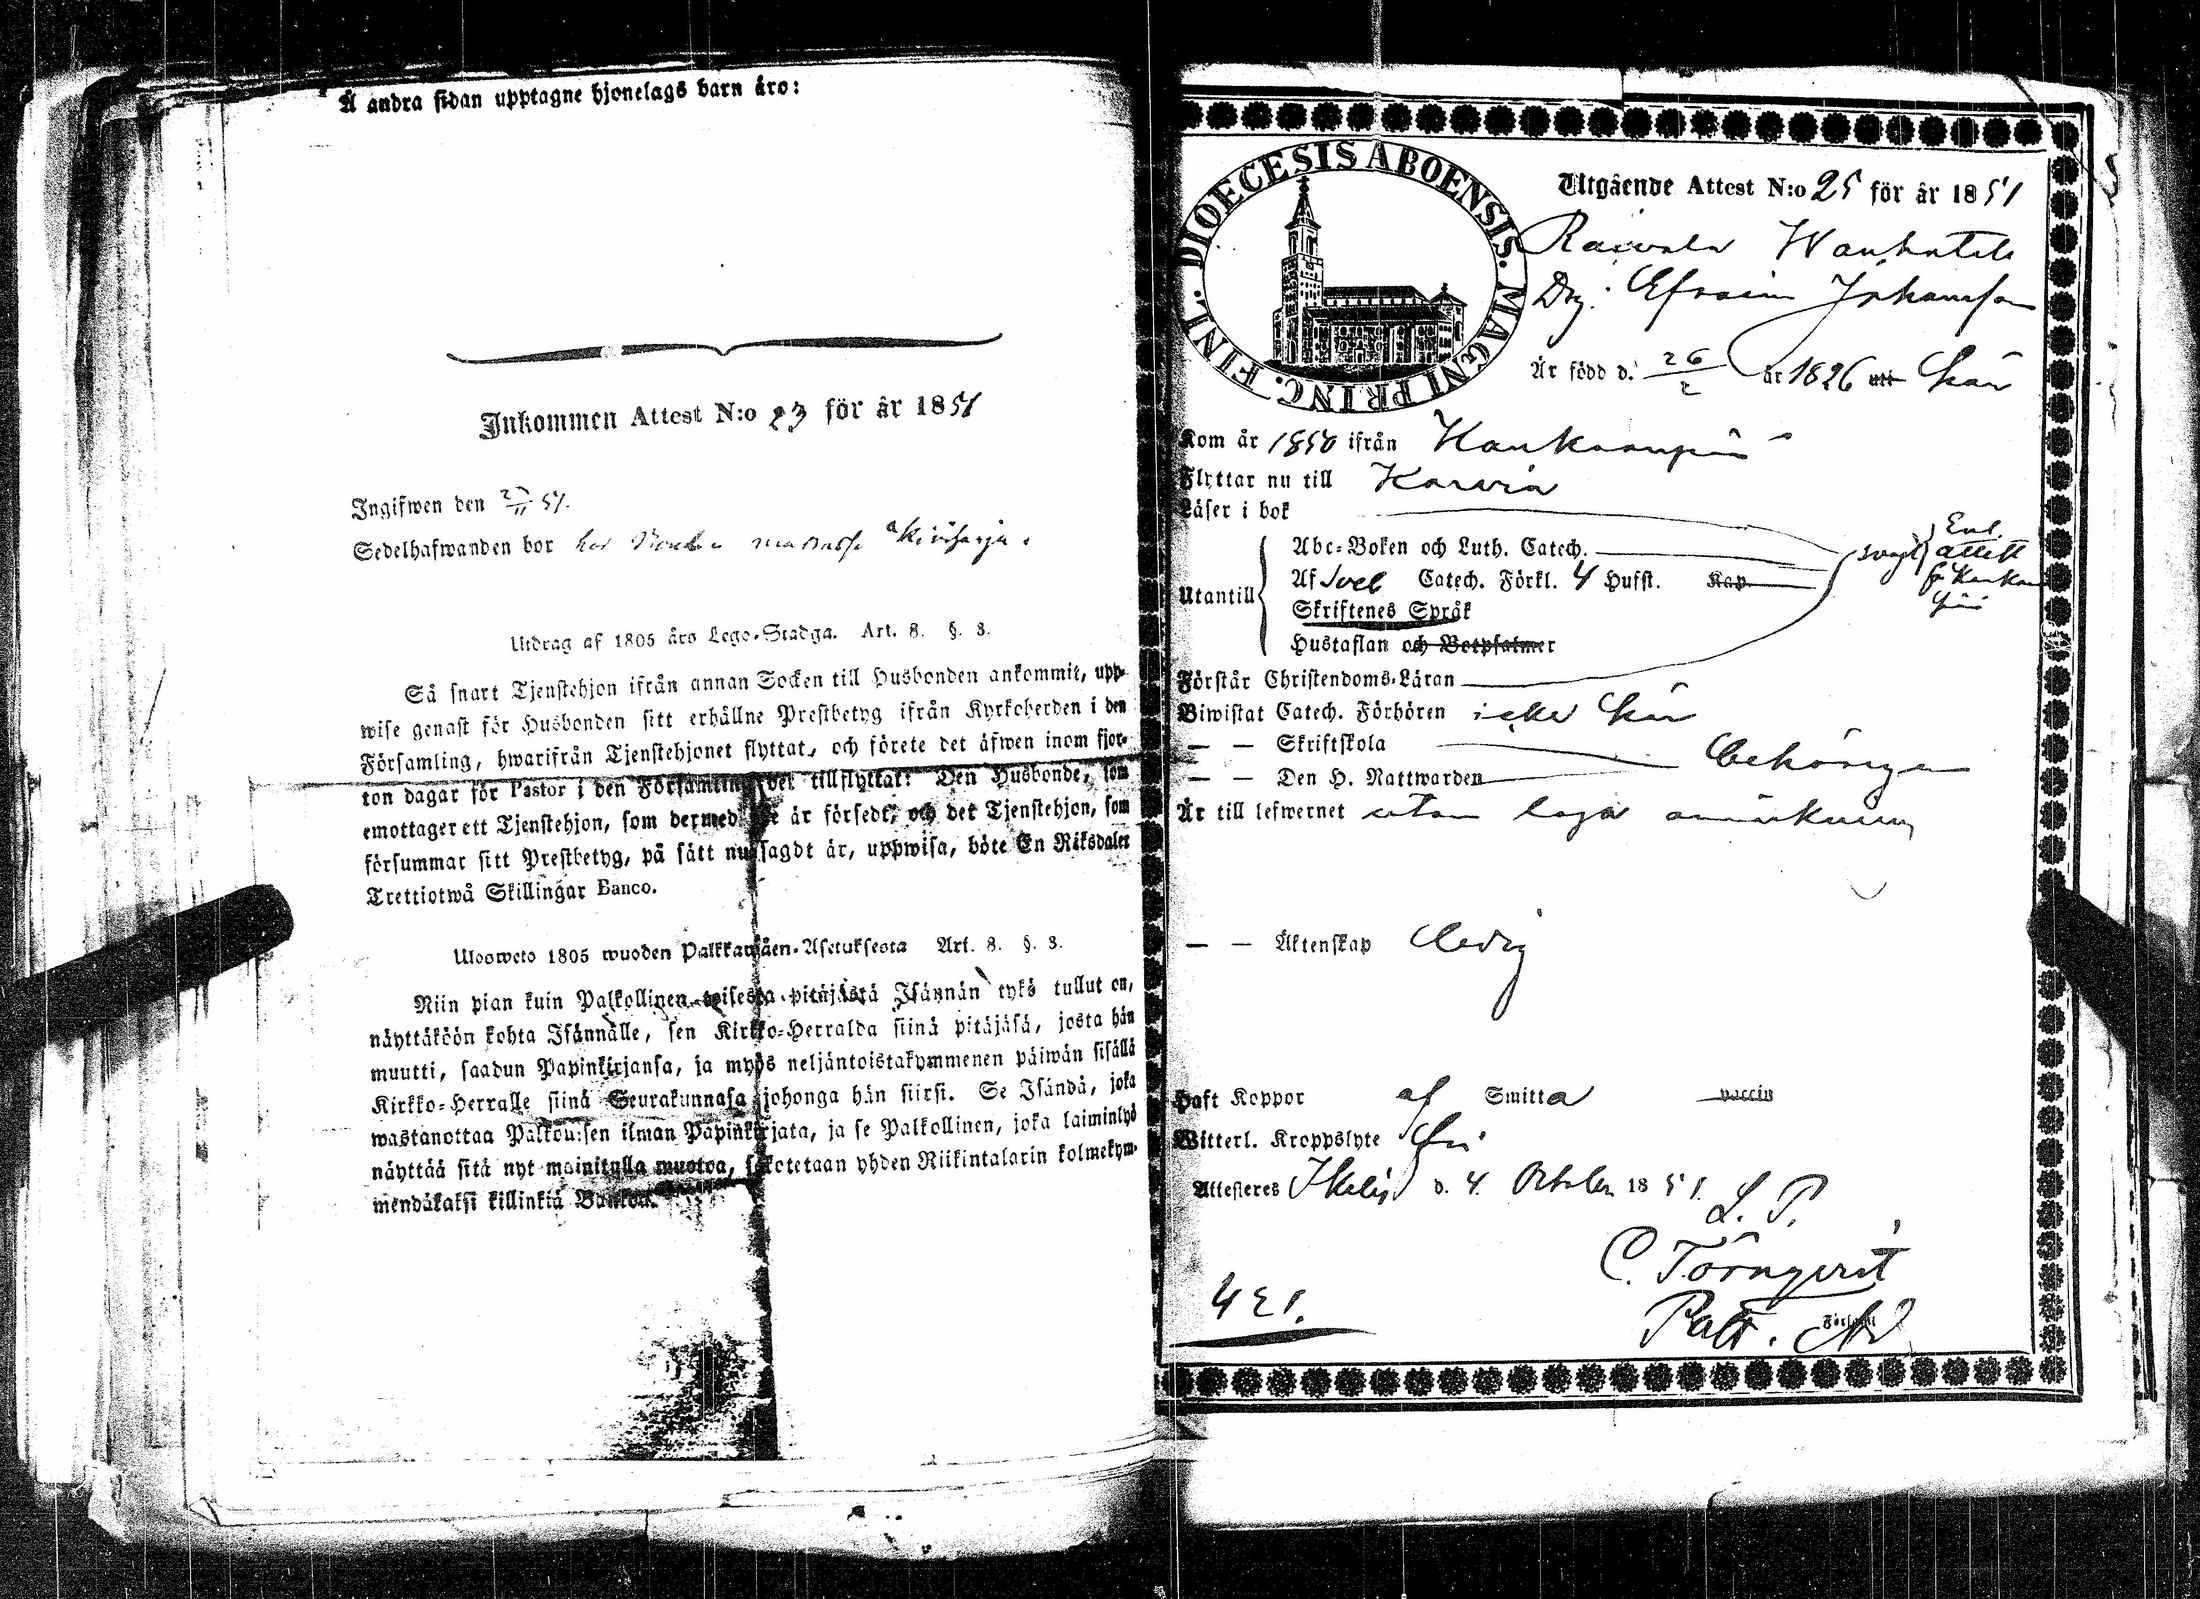 Å andra sidan upptagne hjonelags barn äro:
Inkommen Attest N:o 23 för år 1851
Ingifwen den 51.
Sedelhafwanden bor
Utdrag af 1805 års Lego-Stadga. Art. 8. §. 3.
Så snart Tjenstehjon ifrån annan Socken till Husbonden ankommit, upp-
wise genast för Husbonden sitt erhållne Prestbetyg ifrån Kyrkoherden i den
Församling, hwarifrån Tjenstehjonet flyttat, och förete det äfwen inom fjor-
ton dagar för Pastor i den Församling det tillflyttat: Den Husbonde, som
emottager ett Tjenstehjon, som dermed är försedt, och det Tjenstehjon, som
försummar sitt Prestbetyg, på sätt nu sagdt är, uppwisa, böte En Riksdaler
Trettiotwå Skillingar Banco.
Ulosweto 1805 wuoden Palkkawäen-Asetuksesta Art. 8. §. 3.
Niin pian kuin Palkollinen toisesta pitäjästä Isännän tykö tullut on,
näyttäköön kohta Isännälle, sen Kirkko-Herralda siinä pitäjäsä, josta hän
muutti, saadun Papinkirjansa, ja myös neljäntoistakymmenen päiwän sisällä
Kirkko-Herralle siinä Seurakunnasa johonga hän siirsi. Se Isändä, joka
wastanottaa Palkollisen ilman Papinkirjata, ja se Palkollinen, joka laiminlyö
näyttää sitä nyt mainitulla muotoa, sakotetaan yhden Riikintalarin kolmekym-
mendäkaksi killinkiä Bankoa.
DIOECESIS ABOENSIS. MAGNI PRINC. FINL.
Utgående Attest N:o 25 för år 1851
Raiwala Wanhatalo
Drg. Efraim Johansson
Är född d. 26/2 år 1826 uti här
Kom år 1850 ifrån Kankaanpää
Flyttar nu till Karvia
Läser i bok
Utantill
Abc-Boken och Luth. Catech.
Af Sveb Catech. Förkl. 4 Hufst. Kap.
Skriftenes Språk
Hustaflan och Botpsalmer
svagt Enl. attest fr Kankaanpää
Förstår Christendoms-Läran
Biwistat Catech. Förhören icke här
— — Skriftskola
— — Den H. Nattwarden
behörigen
Är till lefwernet utan laga anmärkning
— — Äktenskap ledig
Haft Koppor af Smitta vaccin
Witterl. Kroppslyte fri
Attesteres Ikalis d. 4 October 1851.
L. P.
C. Törnqvist
421.